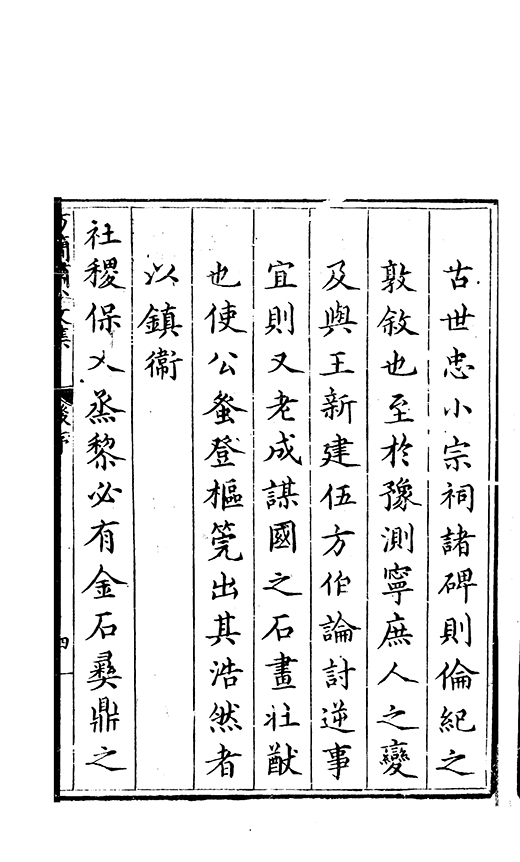 古世忠小宗祠諸碑則倫紀之
敦敘也至於豫測寧庶人之變
及與王新建伍方伯論討逆事
宜則又老成謀國之石畫壯猷
也使公蚤登樞筦出其浩然者
以鎮衞
社稷保乂烝黎必有金石彝鼎之
文集
後序
四